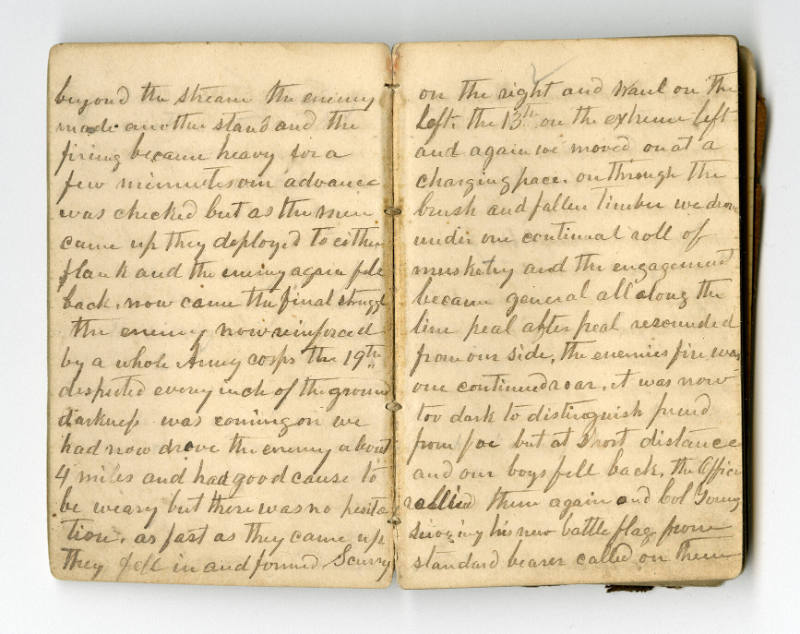 beyond the stream the enemy
made another stand and the
firing became heavy for a
few minnutes our advance
was checked but as the men
came up they deployed to either
flank and the enemy again fell
back. now came the final struggle
the enemy now reinforced
by a whole Army corps the 19th
desputed every inch of the ground
darkness was coming on we
had now drove the enemy about
4 miles and had good cause to
be weary but there was no hesita
tion. as fast as they came up
they fell in and formed Scurry
on the right and Waul on the
left. the 13th on the extreme left
and again we moved on at a
charging pace. on through the
brush and fallen timber we drove
under one continual roll of
musketry and the engagement
became general all along the
line peal after peal resounded
from our side, the enemies fire was
one continued roar. it was now
too dark to distinguish friend
from foe but at short distance
and our boys fell back. the Officers
rallied them again and Col Young
seizing his new battle flag from
standard bearer called on them